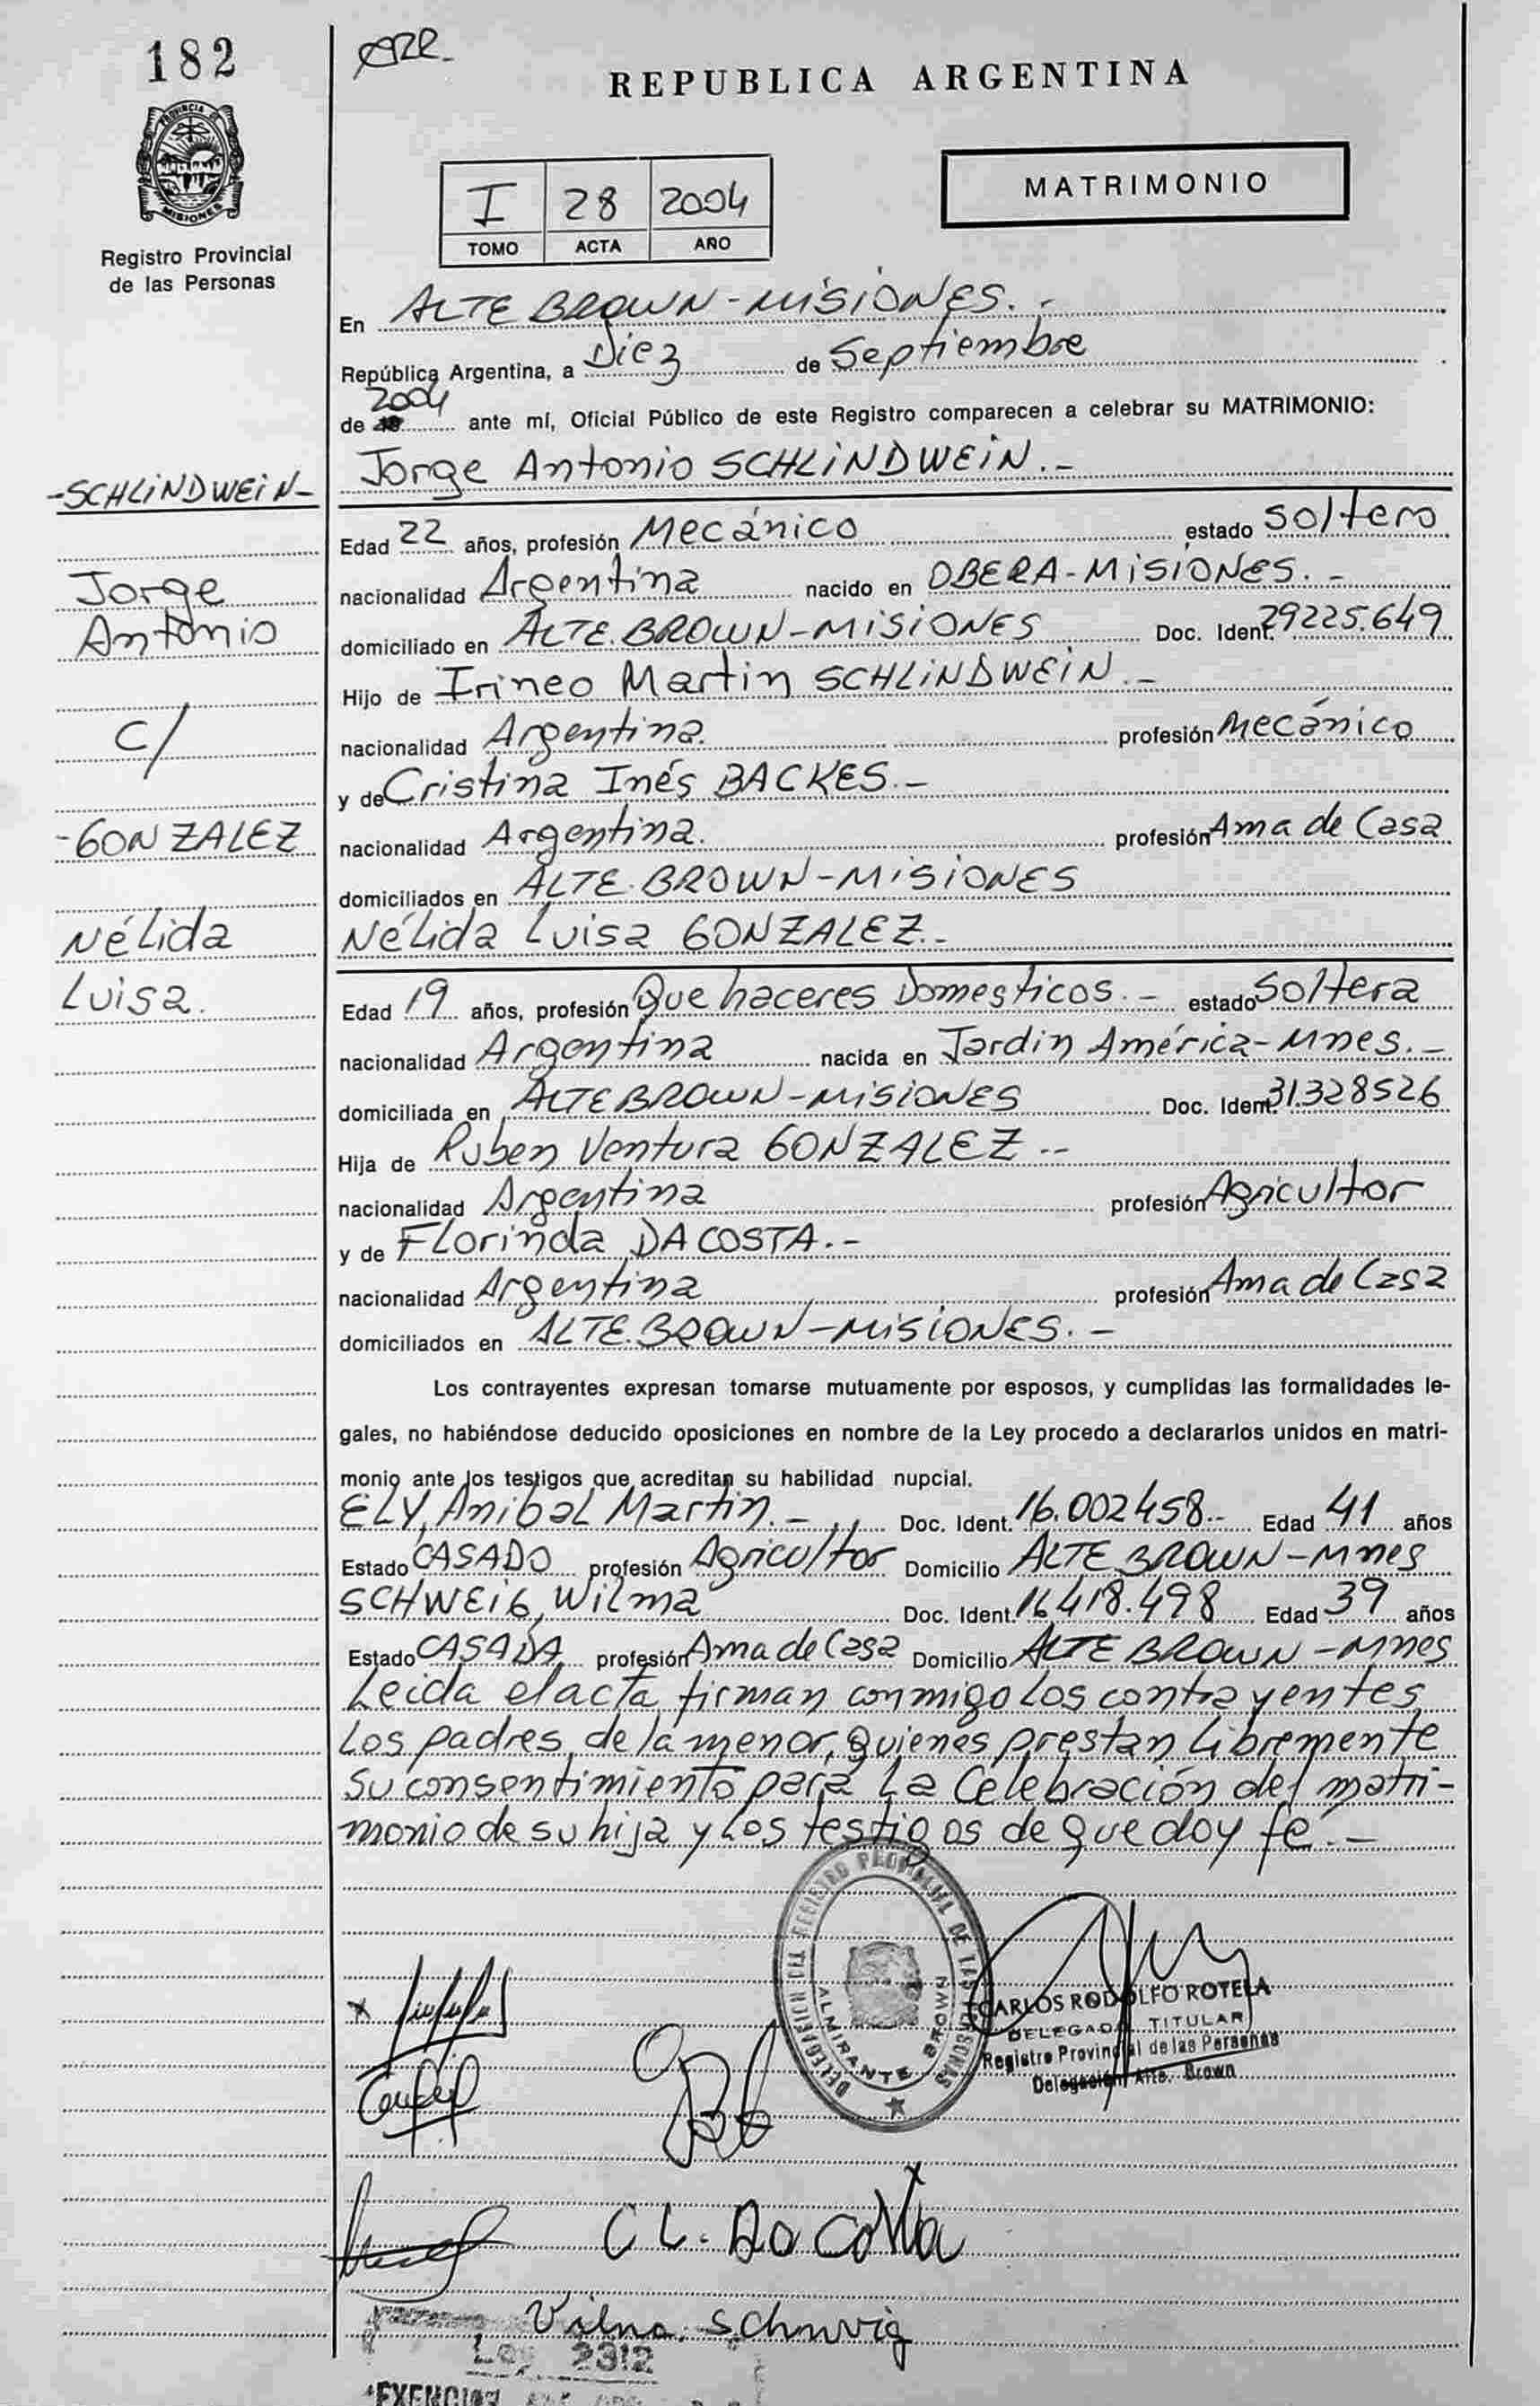 182
PROVINCIA DE
MISIONES
Registro Provincial
de las Personas
REPUBLICA ARGENTINA
MATRIMONIO
I 28 2004
TOMO ACTA AÑO
En ALTE BROWN-MISIONES.-
República Argentina, a Diez de Septiembre
de 2004 ante mí, Oficial Público de este Registro comparecen a celebrar su MATRIMONIO:
Jorge Antonio SCHLINDWEIN.-
-SCHLINDWEIN-
Jorge
Antonio
C/
-GONZALEZ
Nélida
Luisa.
Edad 22 años, profesión Mecánico estado Soltero
nacionalidad Argentina nacido en OBERA-MISIONES.-
domiciliado en ALTE.BROWN-MISIONES Doc. Ident. 29225.649
Hijo de Irineo Martin SCHLINDWEIN.-
nacionalidad Argentina. profesión Mecánico
y de Cristina Inés BACKES.-
nacionalidad Argentina. profesión Ama de Casa
domiciliados en ALTE.BROWN-MISIONES
Nélida Luisa GONZALEZ.-
Edad 19 años, profesión Que haceres Domesticos.- estado Soltera
nacionalidad Argentina nacida en Jardin América-Mnes.-
domiciliada en ALTE BROWN-MISIONES Doc. Ident. 31.328526
Hija de Ruben Ventura GONZALEZ.--
nacionalidad Argentina profesión Agricultor
y de Florinda DACOSTA.-
nacionalidad Argentina profesión Ama de Casa
domiciliados en ALTE.BROWN-MISIONES.-
Los contrayentes expresan tomarse mutuamente por esposos, y cumplidas las formalidades le-
gales, no habiéndose deducido oposiciones en nombre de la Ley procedo a declararlos unidos en matri-
monio ante los testigos que acreditan su habilidad nupcial.
ELY, Anibal Martin.- Doc. Ident. 16.002458.- Edad 41 años
Estado CASADO profesión Agricultor Domicilio ALTE BROWN-Mnes
SCHWEIG, Wilma Doc. Ident. 16.418.498 Edad 39 años
Estado CASADA profesión Ama de Casa Domicilio ALTE BROWN-Mnes
Leida el acta, firman conmigo los contrayentes,
los padres de la menor, quienes prestan libremente
su consentimiento para la celebración del matri-
monio de su hija y los testigos de que doy fe.-
DELEGACION DEL REGISTRO PROVINCIAL DE LAS PERSONAS
ALMIRANTE BROWN
CARLOS RODOLFO ROTELA
DELEGADO TITULAR
Registro Provincial de las Personas
Delegación, Alte. Brown
CL. DA COSTA
Vilma. Schuvig
Ley 2312
EXENCION